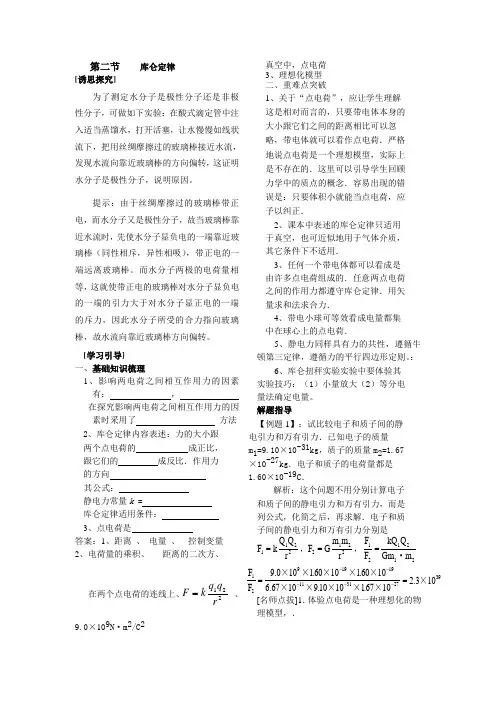 第二节 库仑定律
[诱思探究]
为了测定水分子是极性分子还是非极
性分子，可做如下实验：在酸式滴定管中注
入适当蒸馏水，打开活塞，让水慢慢如线状
流下，把用丝绸摩擦过的玻璃棒接近水流，
发现水流向靠近玻璃棒的方向偏转，这证明
水分子是极性分子，说明原因。
提示：由于丝绸摩擦过的玻璃棒带正
电，而水分子又是极性分子，故当玻璃棒靠
近水流时，先使水分子显负电的一端靠近玻
璃棒（同性相斥，异性相吸），带正电的一
端远离玻璃棒。而水分子两极的电荷量相
等，这就使带正电的玻璃棒对水分子显负电
的一端的引力大于对水分子显正电的一端
的斥力，因此水分子所受的合力指向玻璃
棒，故水流向靠近玻璃棒方向偏转。
[学习引导]
一、基础知识梳理
1、影响两电荷之间相互作用力的因素
有： ，
在探究影响两电荷之间相互作用力的因
素时采用了 方法
2、库仑定律内容表述：力的大小跟
两个点电荷的 成正比，
跟它们的 成反比．作用力
的方向
其公式：
静电力常量 k =
库仑定律适用条件：
3、点电荷是
答案：1、距离 、 电量 、 控制变量
2、电荷量的乘积、 距离的二次方、
在两个点电荷的连线上、F = k q₁q₂/r² 、
9.0×10⁹N·m²/C²
真空中，点电荷
3、理想化模型
二、重难点突破
1、关于“点电荷”，应让学生理解
这是相对而言的，只要带电体本身的
大小跟它们之间的距离相比可以忽
略，带电体就可以看作点电荷．严格
地说点电荷是一个理想模型，实际上
是不存在的．这里可以引导学生回顾
力学中的质点的概念．容易出现的错
误是：只要体积小就能当点电荷，应
予以纠正．
2、课本中表述的库仑定律只适用
于真空，也可近似地用于气体介质，
其它条件下不适用．
3、任何一个带电体都可以看成是
由许多点电荷组成的．任意两点电荷
之间的作用力都遵守库仑定律．用矢
量求和法求合力．
4、带电小球可等效看成电量都集
中在球心上的点电荷．
5、静电力同样具有力的共性，遵循牛
顿第三定律，遵循力的平行四边形定则。：
6、库仑扭秤实验实验中要体验其
实验技巧：（1）小量放大（2）等分电
量法确定电量。
解题指导
【例题 1】：试比较电子和质子间的静
电引力和万有引力．已知电子的质量
m₁=9.10×10⁻³¹kg，质子的质量 m₂=1.67
×10⁻²⁷kg．电子和质子的电荷量都是
1.60×10⁻¹⁹C．
解析：这个问题不用分别计算电子
和质子间的静电引力和万有引力，而是
列公式，化简之后，再求解．电子和质
子间的静电引力和万有引力分别是
F₁ = k Q₁Q₂/r²，F₂ = G m₁m₂/r²，F₁/F₂ = kQ₁Q₂/Gm₁·m₂
F₁/F₂ = 9.0×10⁹×1.60×10⁻¹⁹×1.60×10⁻¹⁹/6.67×10⁻¹¹×9.10×10⁻³¹×1.67×10⁻²⁷ = 2.3×10³⁹
[名师点拔]1.体验点电荷是一种理想化的物
理模型，．